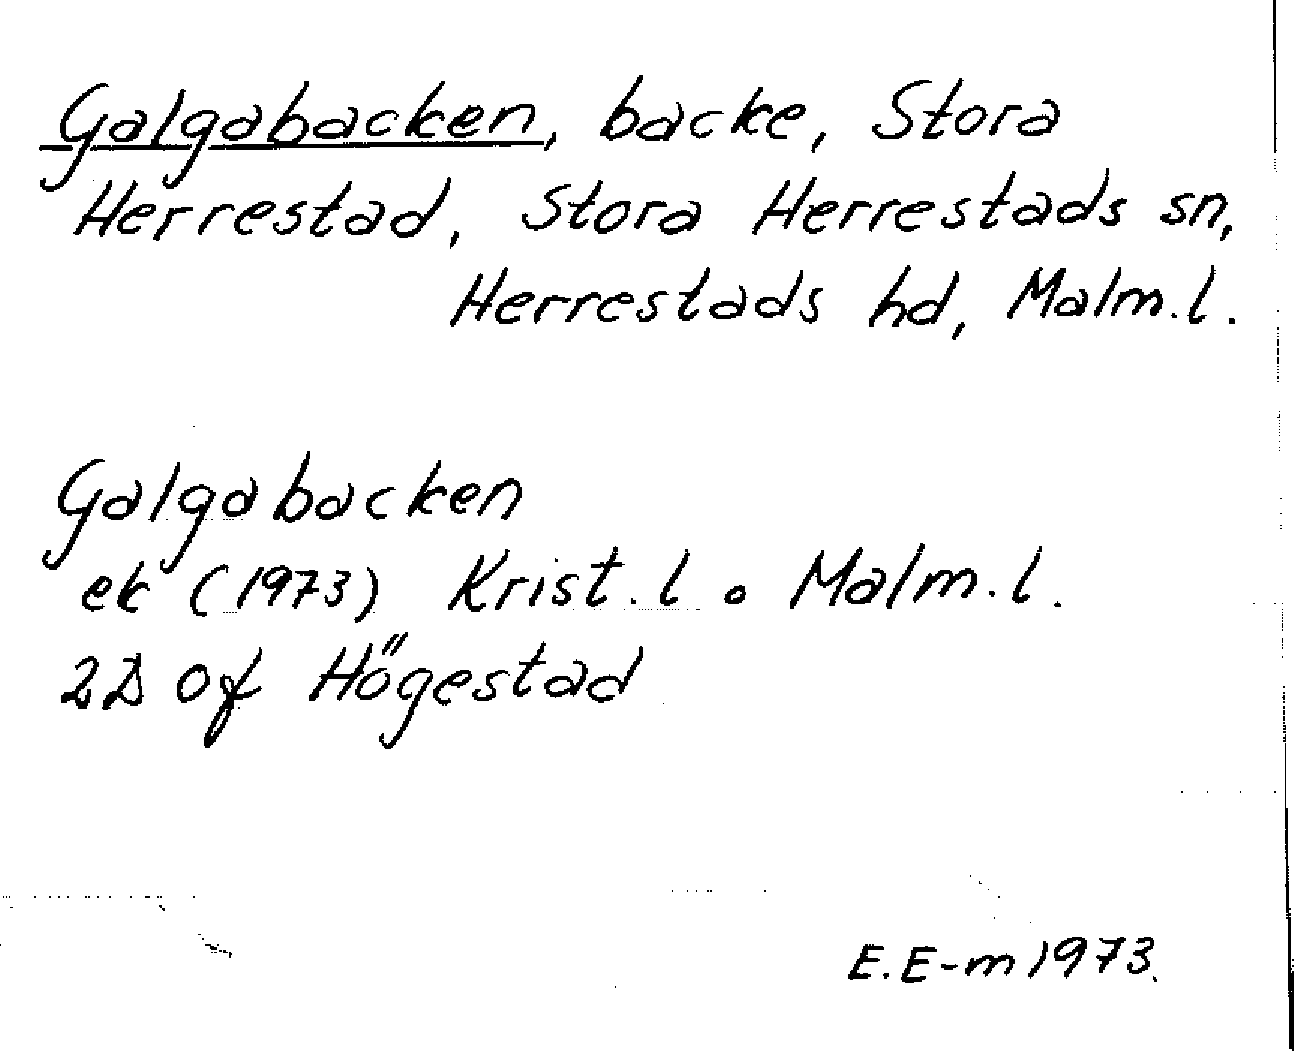 Galgabacken, backe, Stora
Herrestad, Stora Herrestads sn,
Herrestads hd, Malm.l.
Galgabacken
ek (1973) Krist.l o Malm.l.
2D Of Högestad
E.E-m 1973.